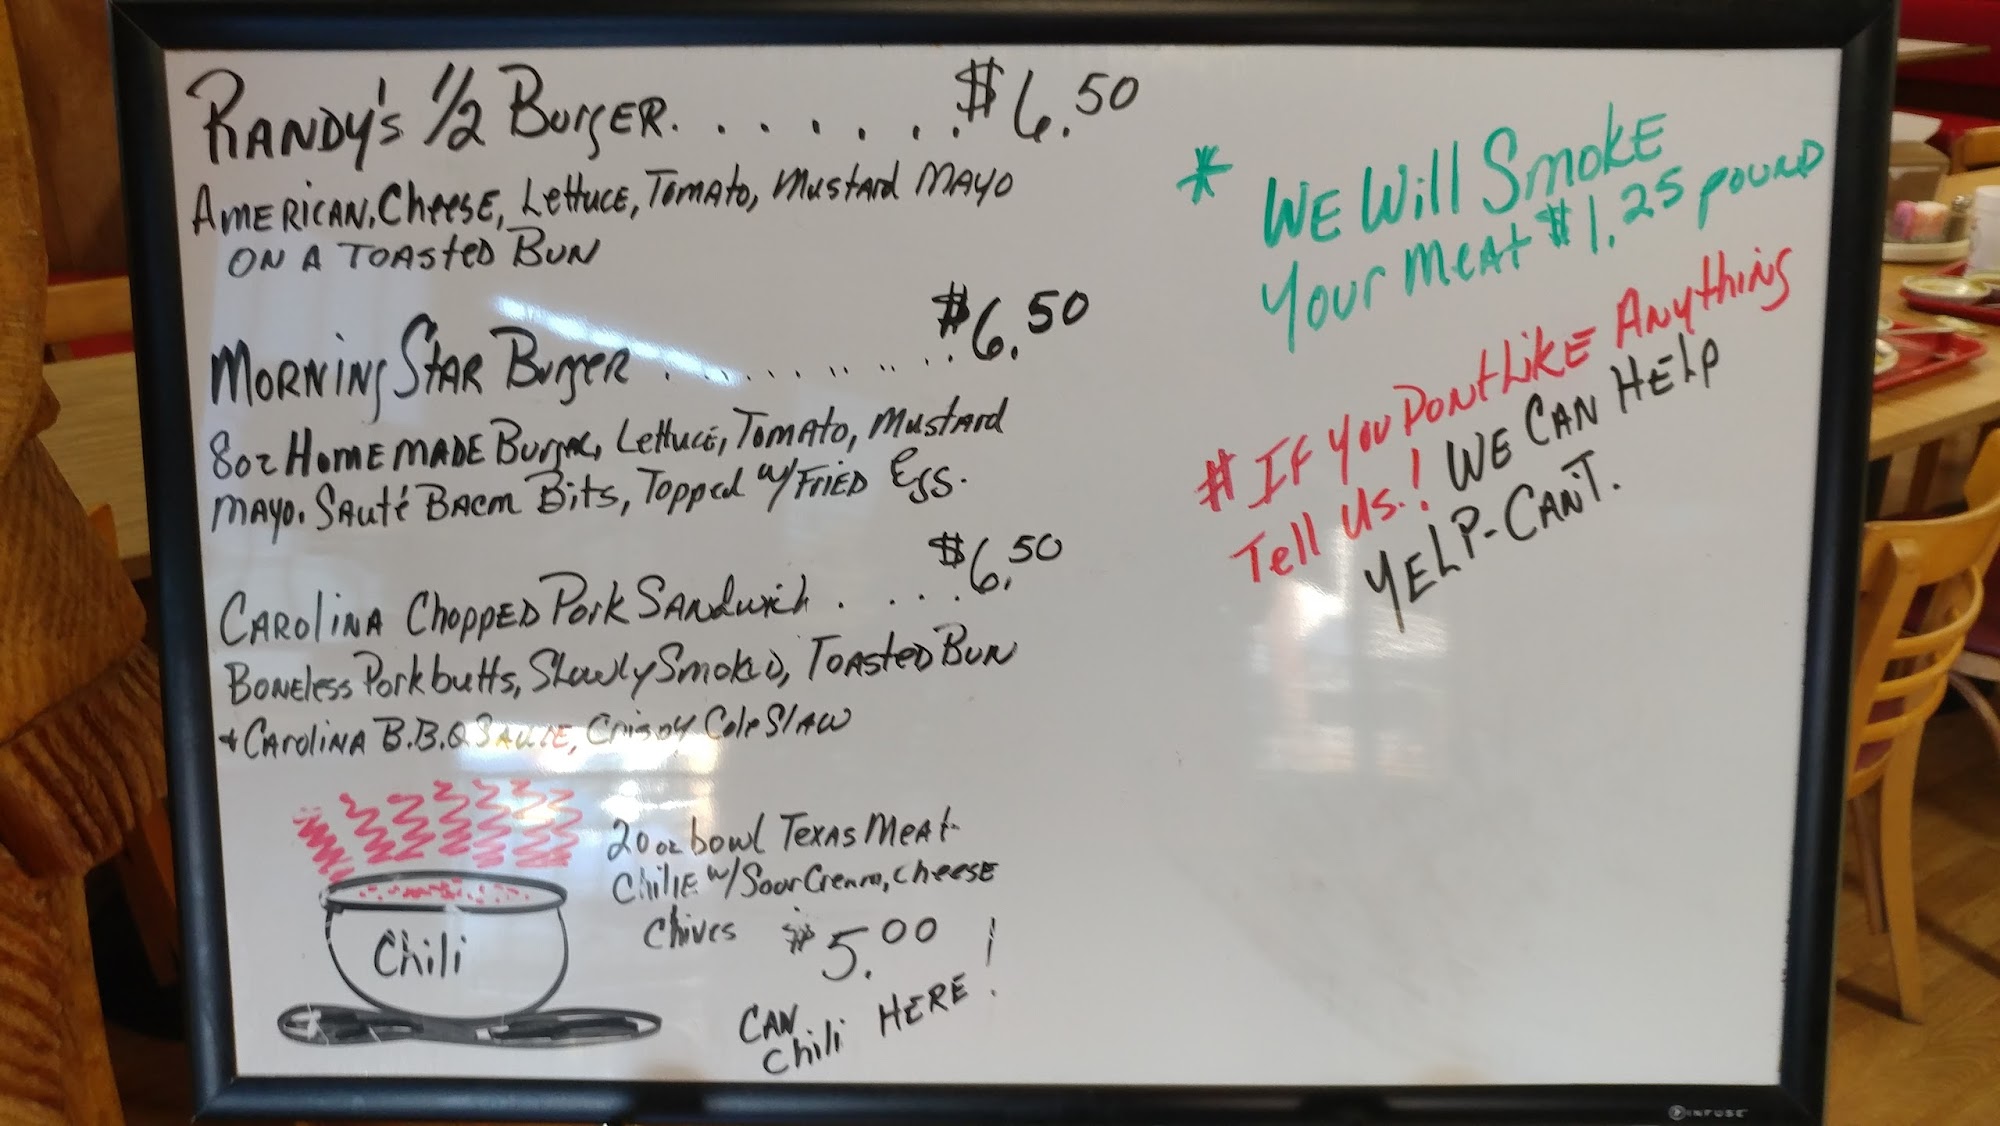 RANDY's 1/2 BurgER. . . . . . . $6.50
AMERICAN, CheeSE, LettucE, TomAto, Mustard MAYO
ON A TOASTED BUN
MORNING STAR BurgER . . . . . . . . . . $6.50
8oz HOMEMADE Burger, Lettuce, Tomato, Mustard
MAYO. Sauté BACON Bits, Topped w/ FRIED Egg.
CAROlINA ChoppED Pork SANdwich . . . . $6.50
BONEless Pork butts, Slowly SmokED, TOASTED BUN
+ CArolINA B.B.Q SAUCE, Crispy Cole SlAW
20 oz bowl TEXAS MEAt
ChiliE w/ Sour Cream, chEESE
Chives $5.00
Chili
CAN
Chili HERE !
* WE Will SmokE
Your mEAt $1.25 pound
# IF You DoNt LikE ANythiNg
Tell Us.! WE CAN HElp
YELP-CAN'T.
INFUSE